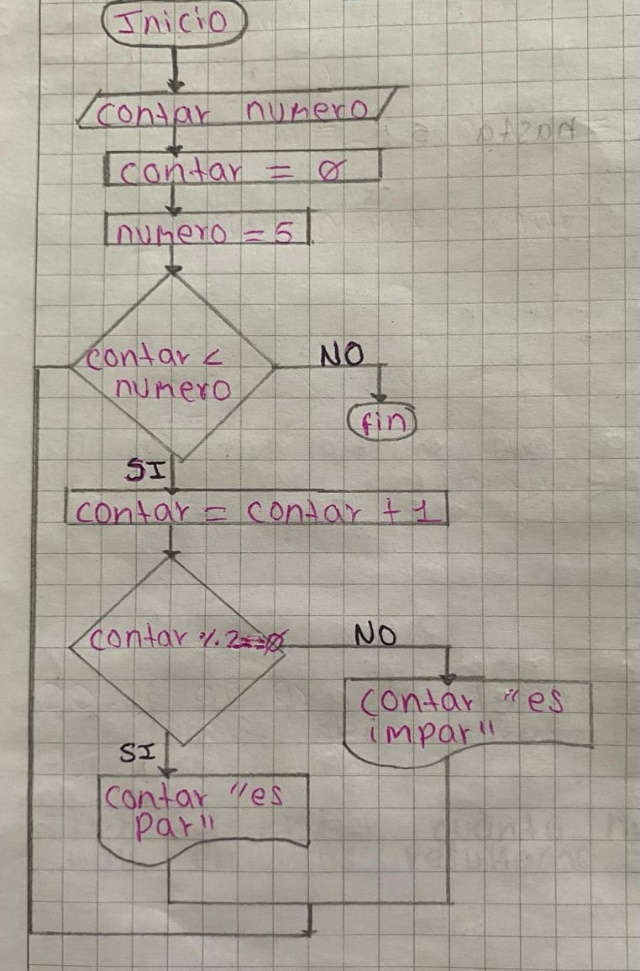 Inicio
contar numero
contar = 0
numero = 5
contar <
numero
NO
fin
SI
contar = contar + 1
contar % 2==0
NO
contar "es
impar"
SI
contar "es
par"